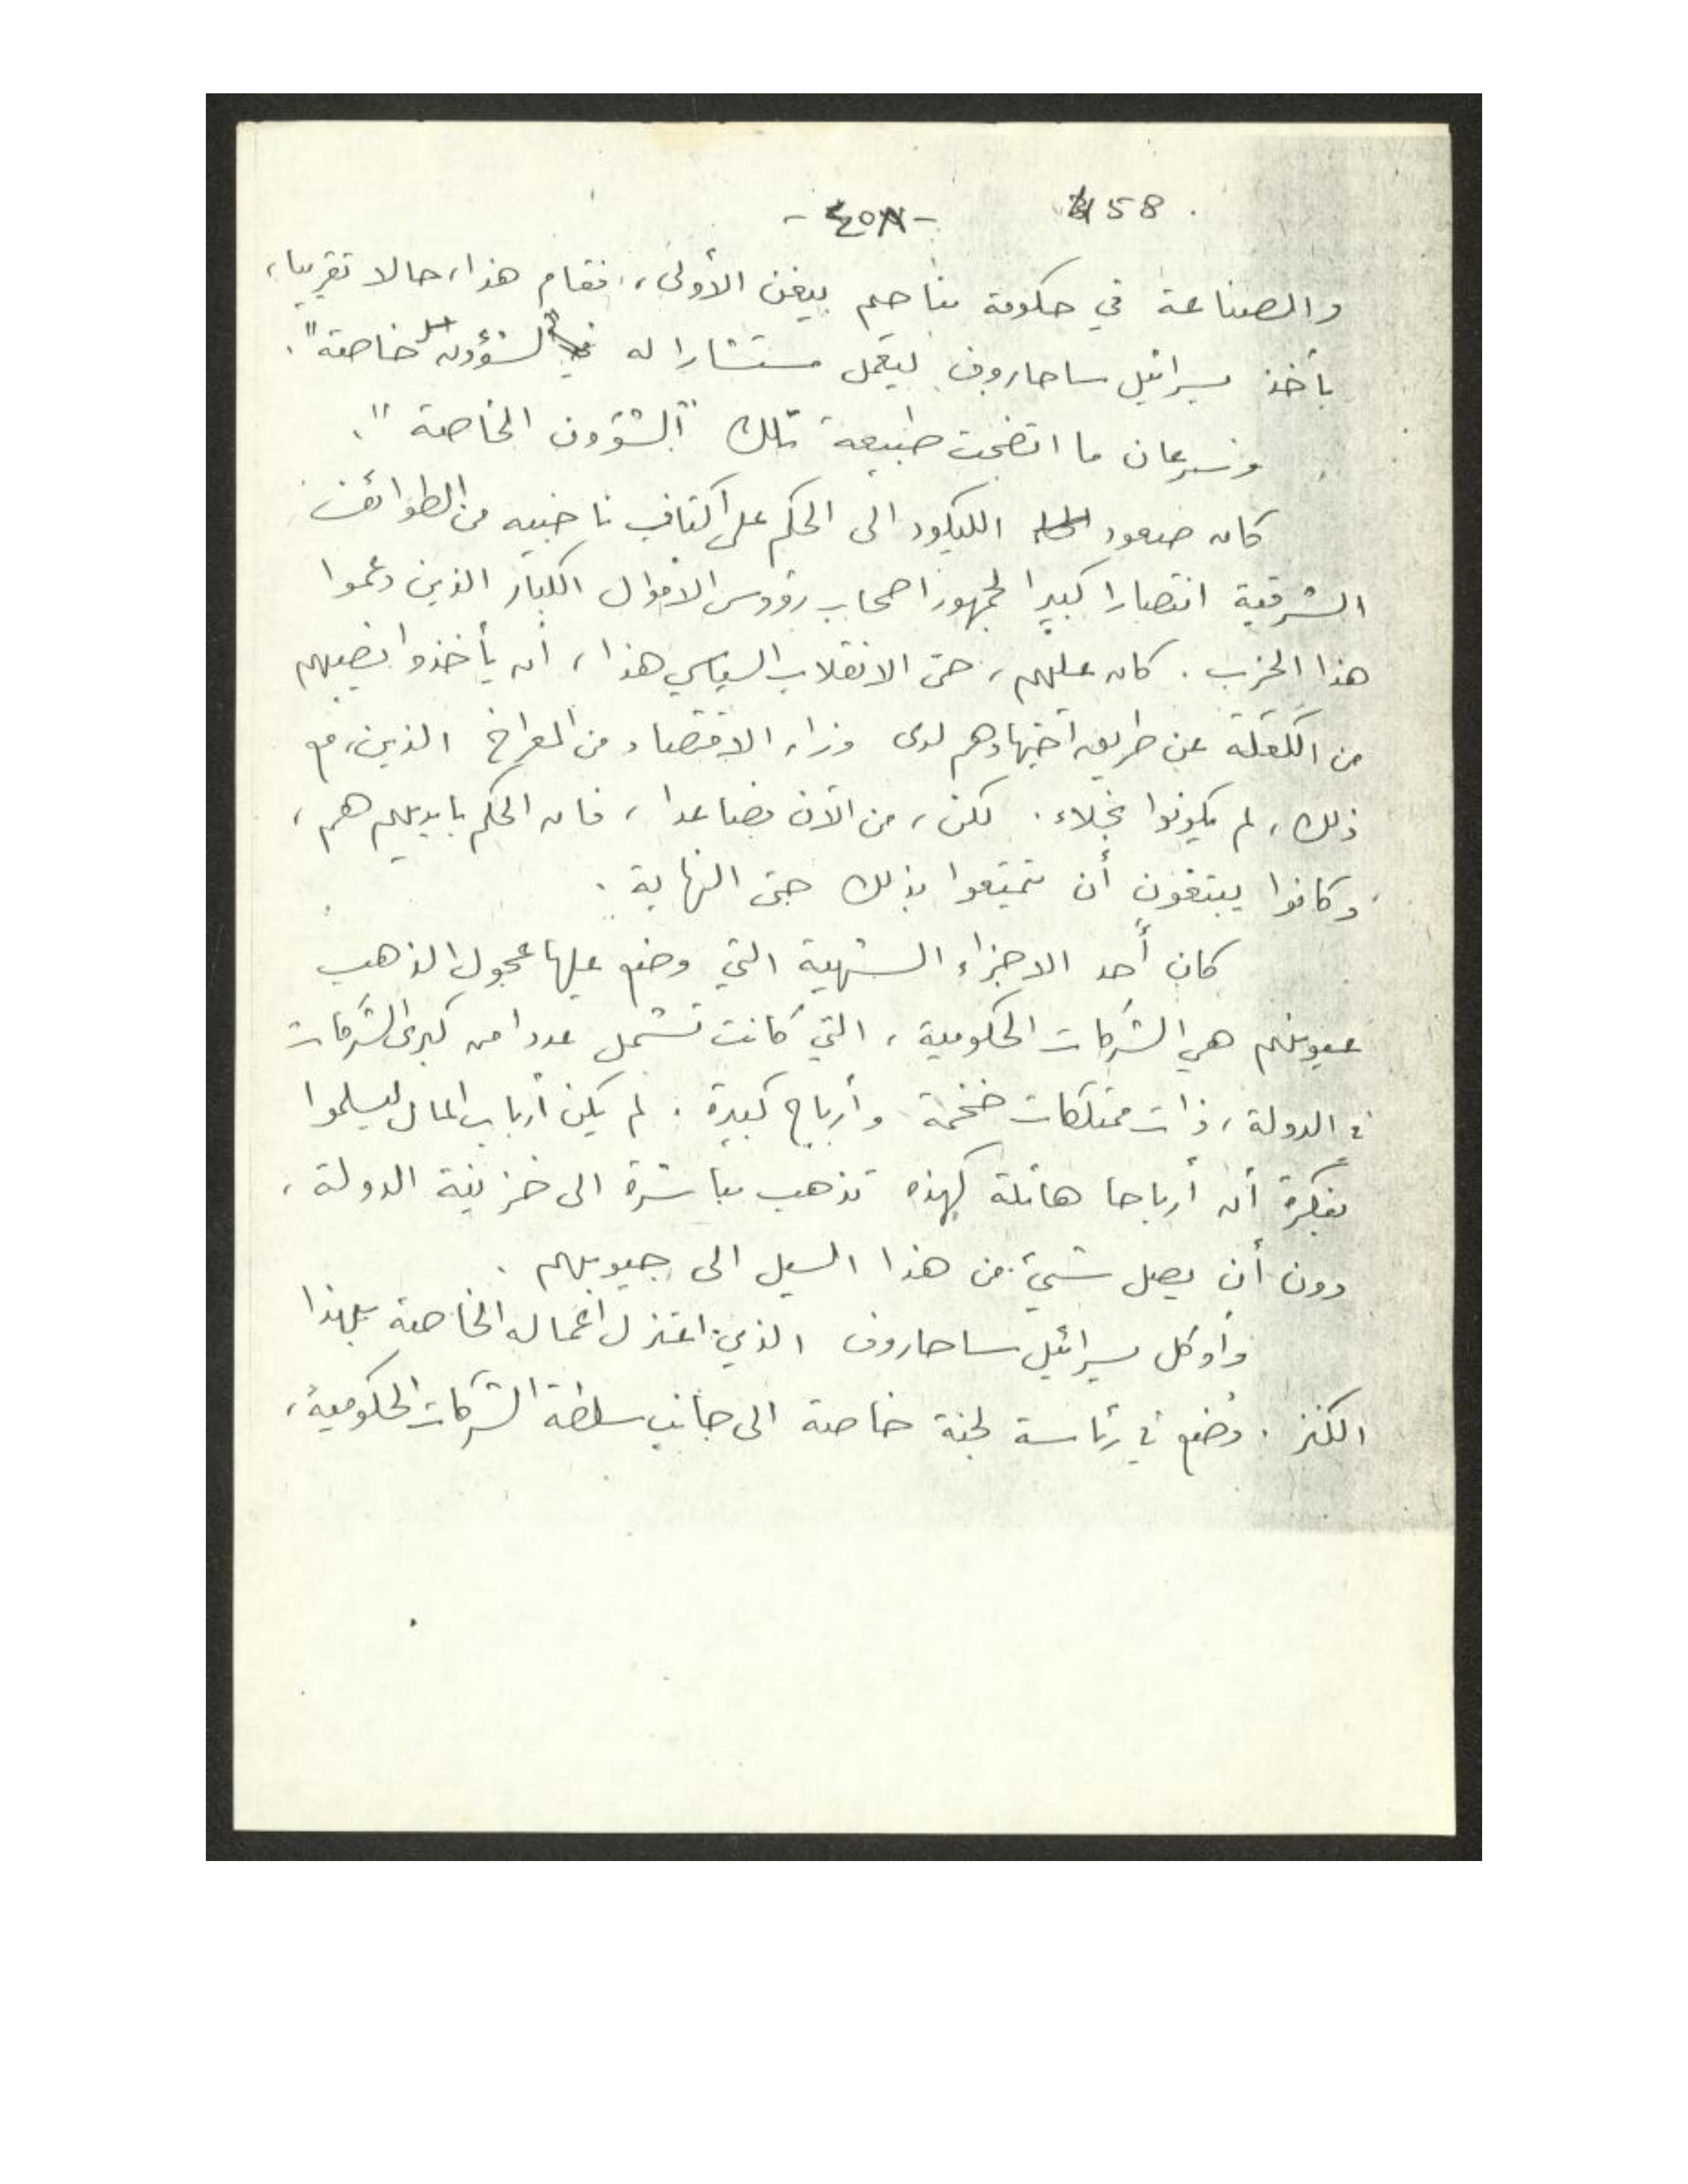 458
- ٤٥٨ -
والصناعة في حكومة مناحم بيغن الأولى، فقام هذا، حالا تقريبا،
بأخذ يسرائيل ساحاروف ليعمل مستشارا له "لشؤون خاصة".
وسرعان ما اتضحت طبيعة تلك "الشؤون الخاصة".
كان صعود الليكود الى الحكم على أكتاف ناخبيه من الطوائف
الشرقية انتصارا كبيرا لجمهور اصحاب رؤوس الاموال الكبار الذين دعموا
هذا الحزب. كان عليهم، حتى الانقلاب السياسي هذا، أن يأخذوا نصيبهم
من الكعكة عن طريق اجتهادهم لدى وزراء الاقتصاد من المعراخ الذين، مع
ذلك، لم يكونوا بخلاء. لكن، من الآن فصاعدا، فان الحكم بايديهم هم،
وكانوا يبتغون أن يتمتعوا بذلك حتى النهاية.
كان أحد الاجزاء الشهية التي وضع عليها عجول الذهب
عيونهم هي الشركات الحكومية، التي كانت تشمل عددا من كبرى الشركات
في الدولة، ذات ممتلكات ضخمة وأرباح كبيرة. لم يكن أرباب المال ليسلموا
بفكرة أن أرباحا هائلة كهذه تذهب مباشرة الى خزينة الدولة،
دون أن يصل شيئ من هذا السيل الى جيوبهم.
وأوكل يسرائيل ساحاروف الذي اعتزل اعماله الخاصة بهذا
الكنز. وضع في رئاسة لجنة خاصة الى جانب سلطة الشركات الحكومية،